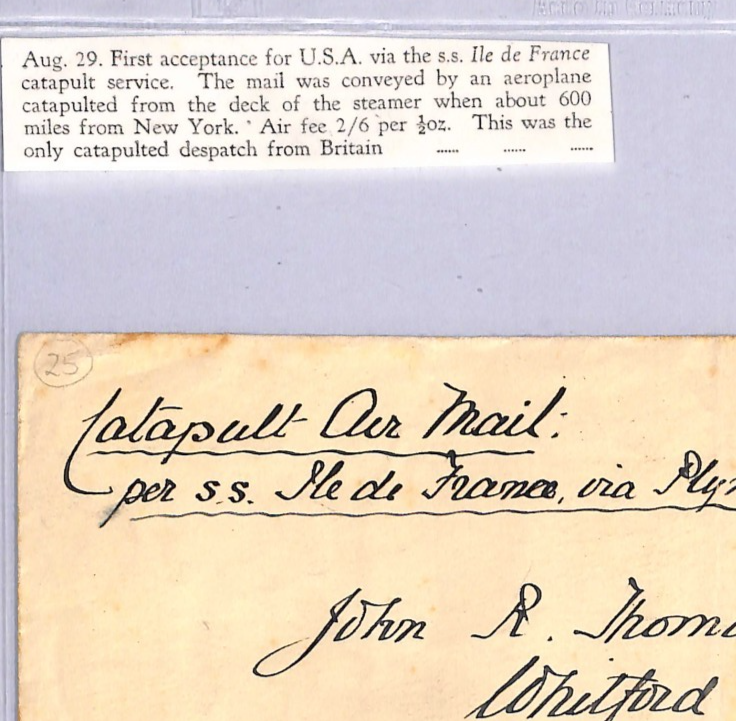 Aug. 29. First acceptance for U.S.A. via the s.s. Ile de France
catapult service. The mail was conveyed by an aeroplane
catapulted from the deck of the steamer when about 600
miles from New York. Air fee 2/6 per ½oz. This was the
only catapulted despatch from Britain ...... ...... ......
25
Catapult Air Mail:
per s.s. Ile de France, via
John R.
Whitford